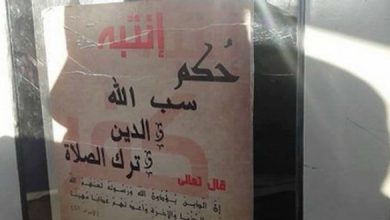 إنتبه
حُكم
سب الله
و الدين
و ترك الصلاة
قال تعالى
إن الذين يؤذون الله ورسوله لعنهم الله
في الدنيا والآخرة وأعد لهم عذابا مهينا